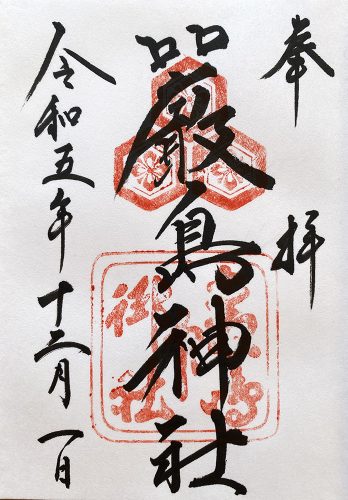 奉拝
嚴島神社
令和五年十二月一日